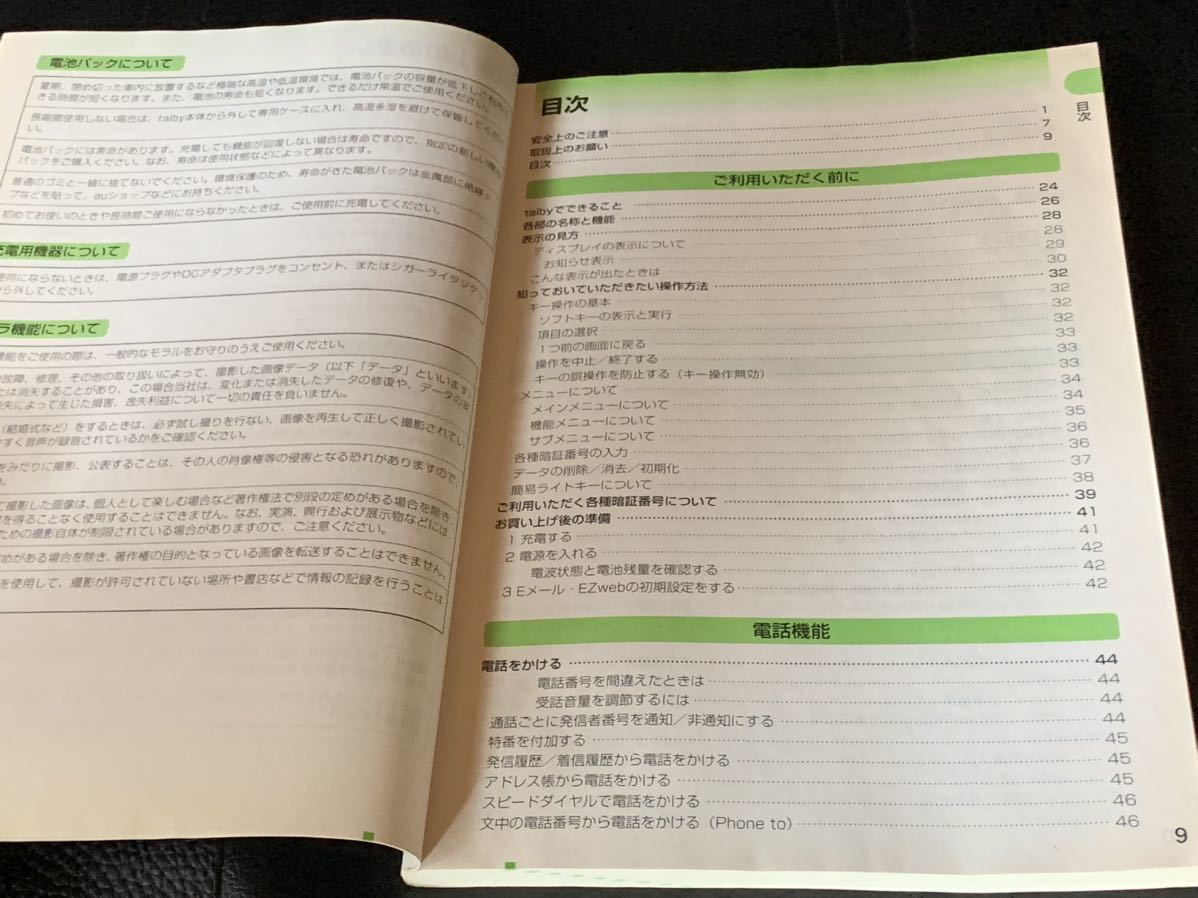 電池パックについて
夏期、閉め切った車内に放置するなど極端な高温や低温環境では、電池パックの容量が低下しご利用で
きる時間が短くなります。また、電池の寿命も短くなります。できるだけ常温でご使用ください。
長期間使用しない場合は、talby本体から外して専用ケースに入れ、高温多湿を避けて保管してくださ
い。
電池パックには寿命があります。充電しても機能が回復しない場合は寿命ですので、指定の新しい
パックをご購入ください。なお、寿命は使用状態などによって異なります。
普通のゴミと一緒に捨てないでください。環境保護のため、寿命がきた電池パックは金属部に絶縁テ
プなどを貼って、auショップなどにお持ちください。
初めてお使いのときや長時間ご使用にならなかったときは、ご使用前に充電してください。
充電用機器について
使用にならないときは、電源プラグやDCアダプタプラグをコンセント、またはシガーライタソケッ
から外してください。
ラ機能について
機能をご使用の際は、一般的なモラルをお守りのうえご使用ください。
故障、修理、その他の取り扱いによって、撮影した画像データ（以下「データ」といいます）
たは消失することがあり、この場合当社は、変化または消失したデータの修復や、データの変
失によって生じた損害、逸失利益について一切の責任を負いません。
（結婚式など）をするときは、必ず試し撮りを行ない、画像を再生して正しく撮影されてい
やすく音声が録音されているかをご確認ください。
をみだりに撮影、公表することは、その人の肖像権等の侵害となる恐れがありますので
て撮影した画像は、個人として楽しむ場合など著作権法で別段の定めがある場合を除き、
を得ることなく使用することはできません。なお、実演、興行および展示物などには、
ための撮影自体が制限されている場合がありますので、ご注意ください。
めがある場合を除き、著作権の目的となっている画像を転送することはできません。
を使用して、撮影が許可されていない場所や書店などで情報の記録を行うことは
目次
目次
安全上のご注意 1
取扱上のお願い 7
目次 9
ご利用いただく前に
talbyでできること 24
各部の名称と機能 26
表示の見方 28
ディスプレイの表示について 28
お知らせ表示 29
こんな表示が出たときは 30
知っておいていただきたい操作方法 32
キー操作の基本 32
ソフトキーの表示と実行 32
項目の選択 32
1つ前の画面に戻る 33
操作を中止／終了する 33
キーの誤操作を防止する（キー操作無効） 33
メニューについて 34
メインメニューについて 34
機能メニューについて 35
サブメニューについて 36
各種暗証番号の入力 36
データの削除／消去／初期化 37
簡易ライトキーについて 38
ご利用いただく各種暗証番号について 39
お買い上げ後の準備 41
1 充電する 41
2 電源を入れる 42
電波状態と電池残量を確認する 42
3 Eメール・EZwebの初期設定をする 42
電話機能
電話をかける 44
電話番号を間違えたときは 44
受話音量を調節するには 44
通話ごとに発信者番号を通知／非通知にする 44
特番を付加する 45
発信履歴／着信履歴から電話をかける 45
アドレス帳から電話をかける 45
スピードダイヤルで電話をかける 46
文中の電話番号から電話をかける（Phone to） 46
9